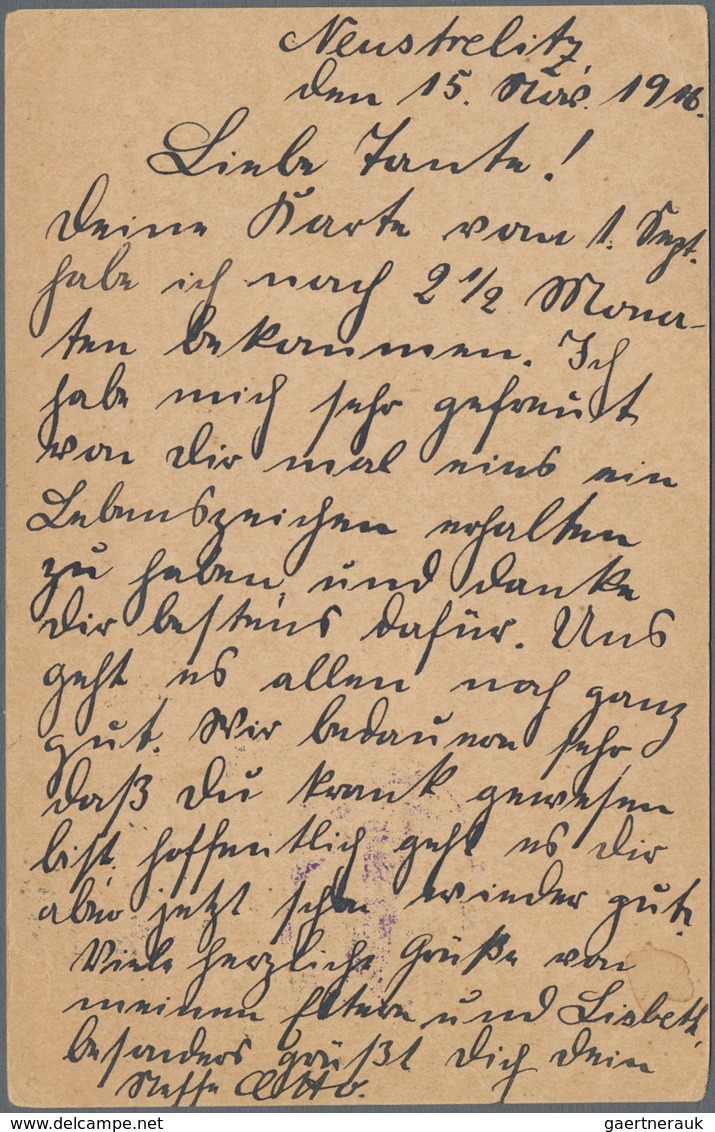 Neustrelitz,
den 15. Nov. 1916.
Liebe Tante!
Deine Karte vom 1. Sept.
habe ich nach 2 1/2 Mona-
ten bekommen. Ich
habe mich sehr gefreut
von Dir mal eins ein
Lebenszeichen erhalten
zu haben, und danke
Dir bestens dafür. Uns
geht es allen noch ganz
gut. Wir bedauern sehr,
daß Du krank gewesen
bist. hoffentlich geht es Dir
aber jetzt schon wieder gut.
Viele herzliche Grüße von
meinen Eltern und Lisbeth,
besonders grüßt Dich Dein
Neffe Otto.
gaertnerauk